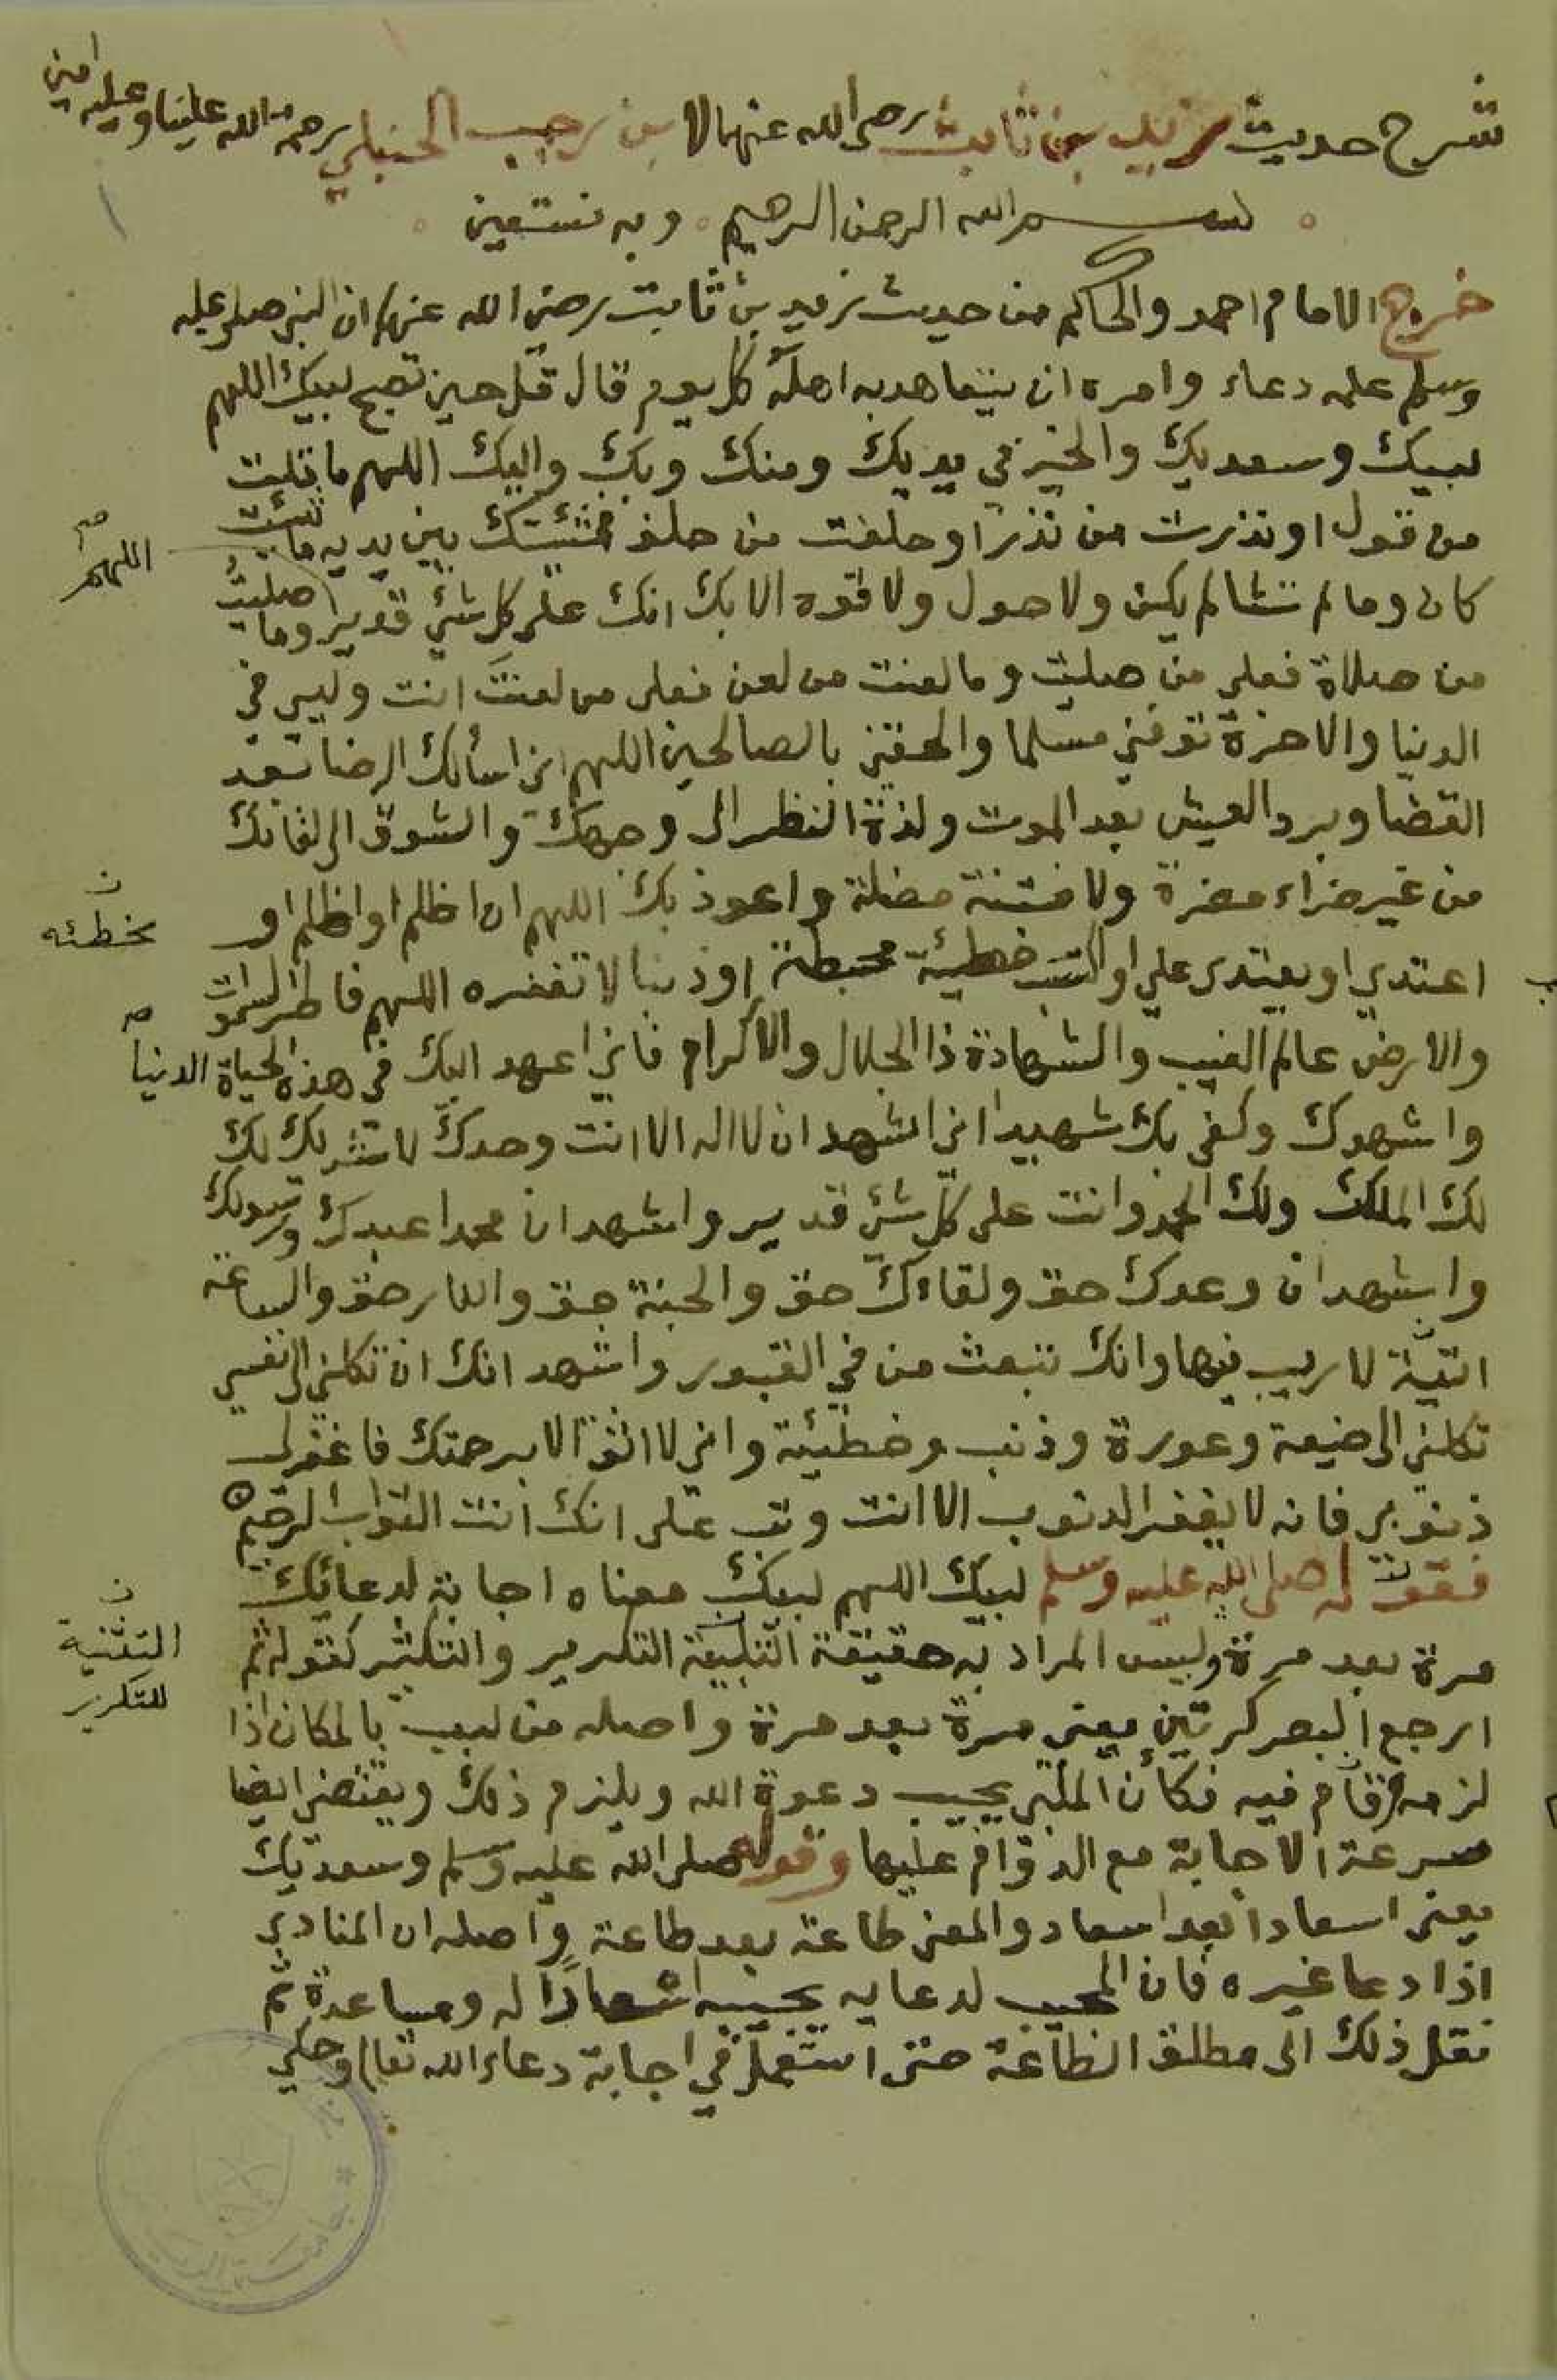 شرح حديث زيد بن ثابت رضي الله عنهما لابن رجب الحنبلي رحمة الله علينا وعليه امين
بسم الله الرحمن الرحيم وبه نستعين
خرج الامام احمد والحاكم من حديث زيد بن ثابت رضي الله عنه ان النبي صلى عليه
وسلم علمه دعاء وامره ان يتعاهد به اهله كل يوم قال قل حين تصبح لبيك اللهم
لبيك وسعديك والخير في يديك ومنك وبك واليك اللهم ما قلت
من قول او نذرت من نذر او حلفت من حلف فمشئتك بين يديه ما شئت
اللهم صح
كان وما لم تشا لم يكن ولا حول ولا قوة الا بك انك على كل شئ قدير وما صليت
من صلاة فعلى من صليت وما لعنت من لعن فعلى من لعنت انت وليي في
الدنيا والاخرة توفني مسلما والحقني بالصالحين اللهم اني اسألك الرضا بعد
القضا وبرد العيش بعد الموت ولذة النظر الى وجهك والشوق الى لقائك
من غير ضراء مضرة ولا فتنة مضلة واعوذ بك اللهم ان اظلم او اظلم او
بخطئه ن
اعتدي او يعتدى علي او اكتسب خطيئة محبطة او ذنبا لا تغفره اللهم فاطر السموات
والارض عالم الغيب والشهادة ذا الجلال والاكرام فاني اعهد اليك في هذه الحياة الدنيا صح
واشهدك وكفى بك شهيدا اني اشهد ان لا اله الا انت وحدك لا شريك لك
لك الملك ولك الحمد وانت على كل شئ قدير واشهد ان محمدا عبدك ورسولك
واشهد ان وعدك حق ولقاءك حق والجنة حق والنار حق والساعة
اتية لا ريب فيها وانك تبعث من في القبور واشهد انك ان تكلني الى نفسي
تكلني الى ضيعة وعورة وذنب وخطيئة واني لا اثق الا برحمتك فاغفر لي
ذنوبي فانه لا يغفر الذنوب الا انت وتب علي انك انت التواب الرحيم
فقوله صلى الله عليه وسلم لبيك اللهم لبيك معناه اجابة لدعائك
مرة بعد مرة وليس المراد به حقيقة التلبية التكرير والتكثير كقوله ثم
التثنية ن
للتكرير
ارجع البصر كرتين يعني مرة بعد مرة واصله من لبب بالمكان اذا
لزمه واقام فيه فكأن الملبي يجيب دعوة الله ويلزم ذلك ويقتضي ايضا
سرعة الاجابة مع الدوام عليها وقوله صلى الله عليه وسلم وسعديك
يعني اسعادا بعد اسعاد والمعنى طاعة بعد طاعة واصله ان المنادي
اذا دعا غيره فان المجيب لدعايه يجيبه اسعادا له ومساعدة ثم
نقل ذلك الى مطلق الطاعة حتى استعمل في اجابة دعاء الله تعالى وحكي